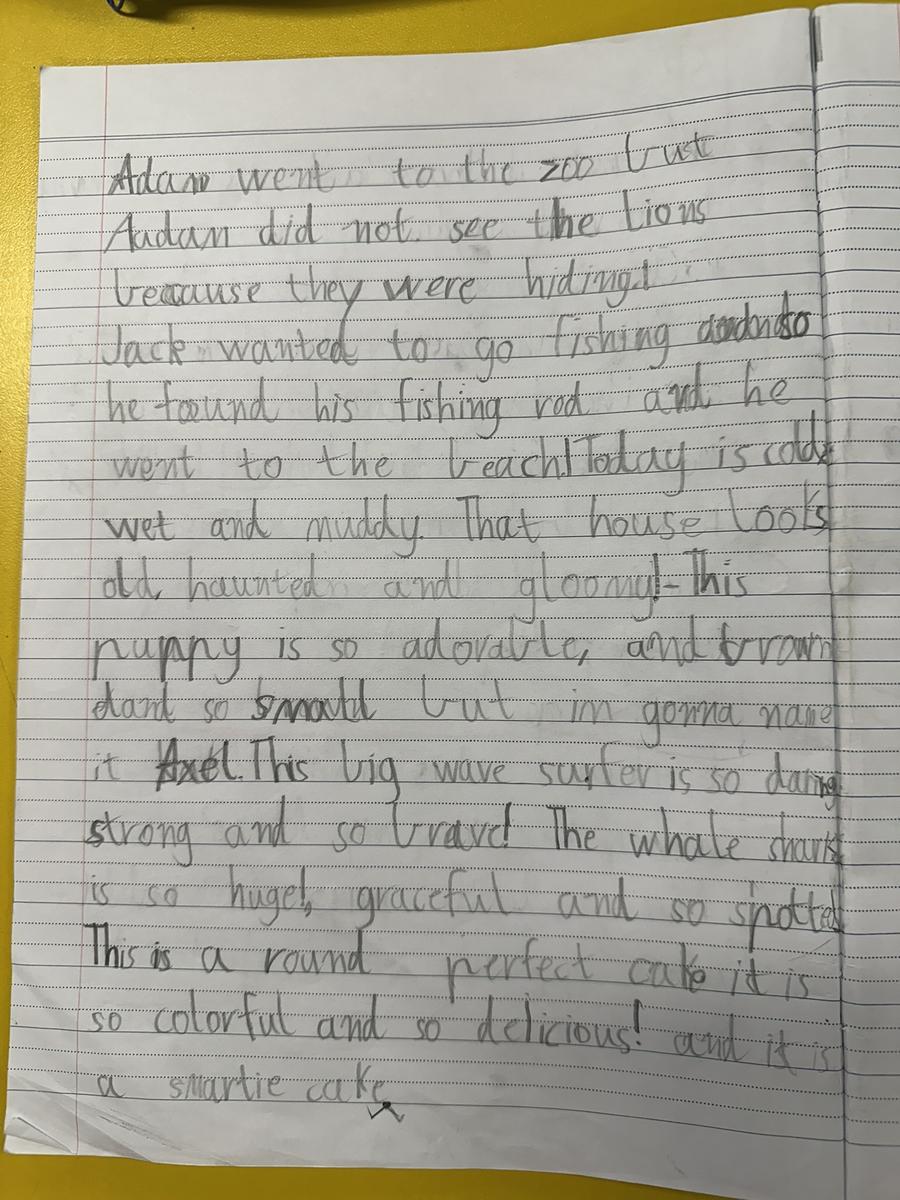 Adam went to the zoo but
Aadam did not see the lions
because they were hiding!
Jack wanted to go fishing so
he found his fishing rod and he
went to the beach! Today is cold,
wet and muddy. That house looks
old, haunted and gloomy! This
puppy is so adorable, and brown
and so small but im gonna name
it Axel. This big wave surfer is so daring
strong and so brave! The whale shark
is so huge!, graceful and so spotted
This is a round perfect cake it is
so colorful and so delicious! and it is
a smartie cake